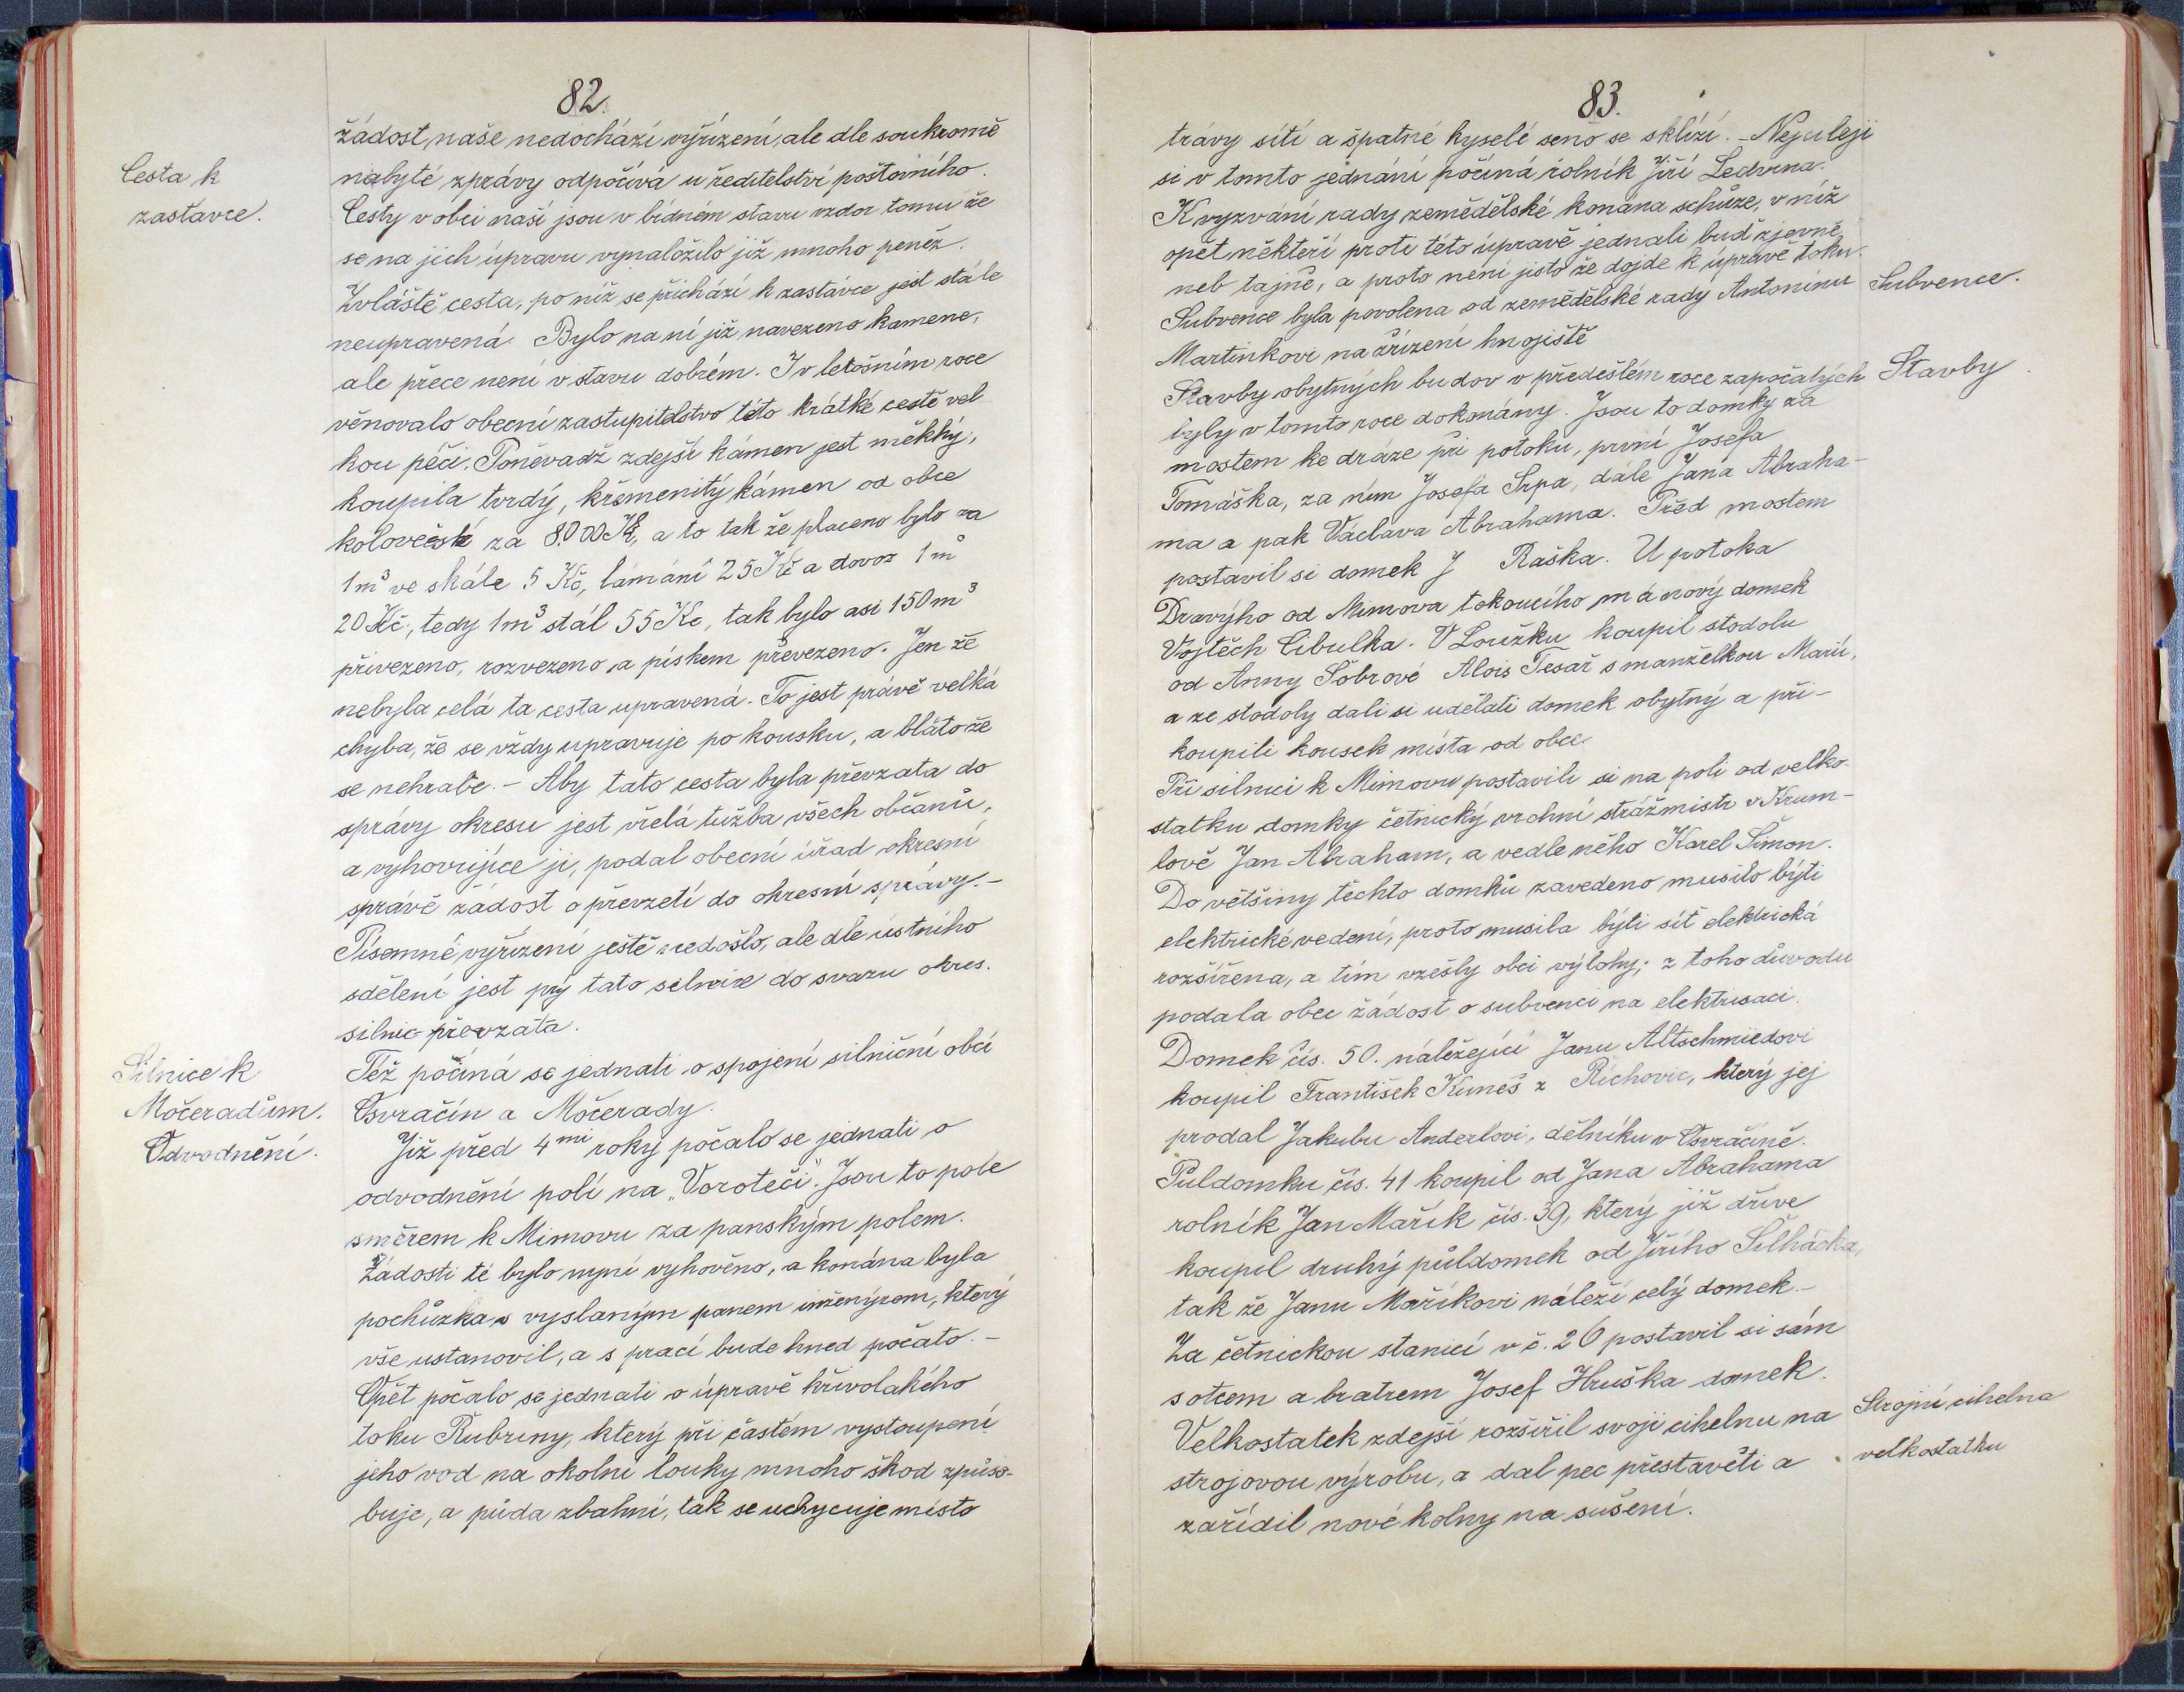 82.
žádost naše nedochází vyřízení, ale dle soukromě
nabyté zprávy odpočívá u ředitelství poštovního.
Cesta k
zastávce.
Cesty v obci naší jsou v bídném stavu vzdor tomu že
se na jich úpravu vynaložilo již mnoho peněz.
Zvláště cesta, po níž se přichází k zastávce jest stále
neupravená. Bylo na ní již navezeno kamene,
ale přece není v stavu dobrém. I v letošním roce
věnovalo obecní zastupitelstvo této krátké cestě vel
kou péči. Poněvadž zdejší kámen jest měkký,
koupila tvrdý, křemenitý kámen od obce
kolovečské za 8.000 Kč, a to tak že placeno bylo za
1 m³ ve skále 5 Kč, lámání 25 Kč a dovoz 1 m³
20 Kč, tedy 1 m³ stál 55 Kč, tak bylo asi 150 m³
přivezeno, rozvezeno a pískem převezeno. Jen že
nebyla celá ta cesta upravená. To jest právě velká
chyba, že se vždy upravuje po kousku, a bláto že
se nehrabe. – Aby tato cesta byla převzata do
správy okresu jest vřelá tužba všech občanů,
a vyhovujíce ji, podal obecní úřad okresní
správě žádost o převzetí do okresní správy. –
Písemné vyřízení ještě nedošlo, ale dle ústního
sdělení jest prý tato silnice do svazu okres.
silnic převzata.
Silnice k
Močeradům.
Též počíná se jednati o spojení silniční obcí
Osvračín a Močerady.
Odvodnění.
Již před 4mi roky počalo se jednati o
odvodnění polí na „Voroteči". Jsou to pole
směrem k Mimovu za panským polem.
Žádosti té bylo nyní vyhověno, a konána byla
pochůzka s vyslaným panem inženýrem, který
vše ustanovil, a s prací bude hned počato. –
Opět počalo se jednati o úpravě křivolakého
toku Rubřiny, který při častém vystoupení
jeho vod na okolní louky mnoho škod způso-
buje, a půda zbahní, tak se uchycuje místo
83.
trávy sítí a špatné kyselé seno se sklízí. – Nejuleji
si v tomto jednání počíná rolník Jiří Ledvina.
K vyzvání rady zemědělské konána schůze, v níž
opět někteří proti této úpravě jednali buď zjevně
neb tajně, a proto není jisto že dojde k úpravě toku.
Subvence.
Subvence byla povolena od zemědělské rady Antonínu
Martinkovi na zřízení hnojiště
Stavby
Stavby obytných budov v předešlém roce započatých
byly v tomto roce dokonány. Jsou to domky za
mostem ke dráze při potoku, první Josefa
Tomáška, za ním Josefa Srpa, dále Jana Abraha-
ma a pak Václava Abrahama. Před mostem
postavil si domek J Raška. U potoka
Dravýho od Mimova tokoucího má nový domek
Vojtěch Cibulka. V Loužku koupil stodolu
od Anny Šobrové Alois Tesař s manželkou Marií,
a ze stodoly dali si udělati domek obytný a při-
koupili kousek místa od obce.
Při silnici k Mimovu postavili si na poli od velko-
statku domky četnický vrchní strážmistr v Krum-
lově Jan Abraham, a vedle něho Karel Šimon.
Do většiny těchto domků zavedeno musilo býti
elektrické vedení, proto musila býti síť elektrická
rozšířena, a tím vzešly obci výlohy; z toho důvodu
podala obec žádost o subvenci na elektrisaci.
Domek čís. 50. náležející Janu Altschmiedovi
koupil František Kuneš z Říchovic, který jej
prodal Jakubu Anderlovi, dělníku v Osvračíně.
Půldomku čís. 41 koupil od Jana Abrahama
rolník Jan Mařík čís. 39, který již dříve
koupil druhý půldomek od Jiřího Šilháčka,
tak že Janu Maříkovi náleží celý domek. –
Za četnickou stanicí v č. 26 postavil si sám
s otcem a bratrem Josef Hruška domek.
Strojní cihelna
velkostatku
Velkostatek zdejší rozšířil svoji cihelnu na
strojovou výrobu, a dal pec přestavěti a
zařídil nové kolny na sušení.